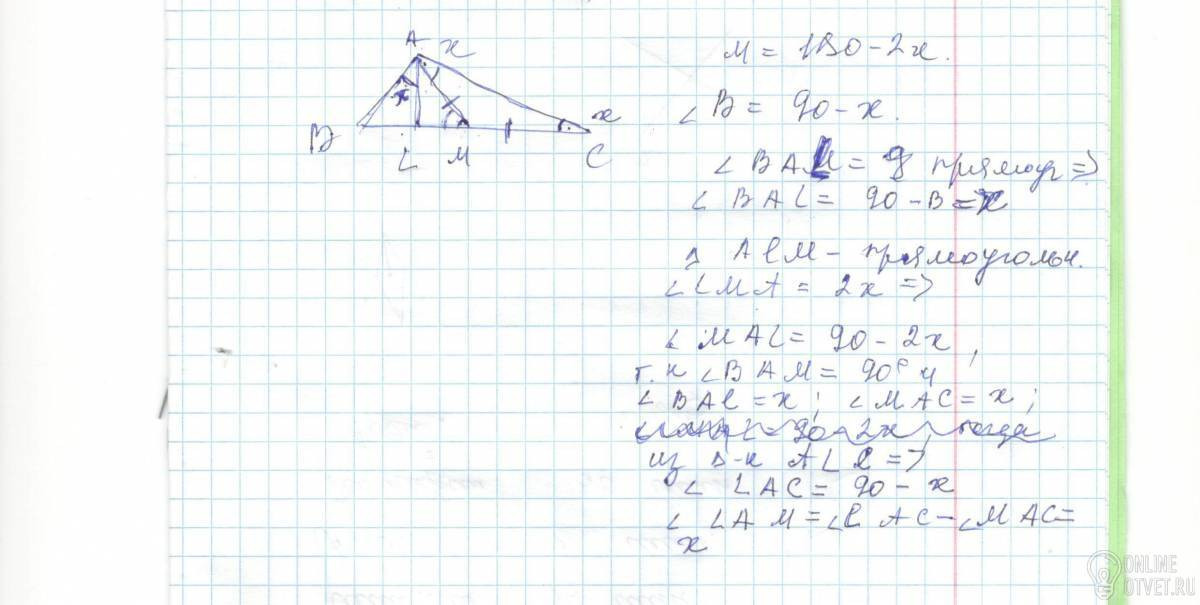 A x
x
x
B
L
M
C
M = 180 - 2x.
∠ B = 90 - x.
∠ BAL = прямоуг =>
∠ BAL = 90 - B = x
ALM - прямоугольн.
∠ LMA = 2x =>
∠ MAL = 90 - 2x,
т.к ∠ BAM = 90° и
∠ BAL = x; ∠ MAC = x;
из Δ-к ALC =>
∠ LAC = 90 - x
∠ LAM = ∠LAC - ∠MAC =
x
ONLINE
OTVET.RU